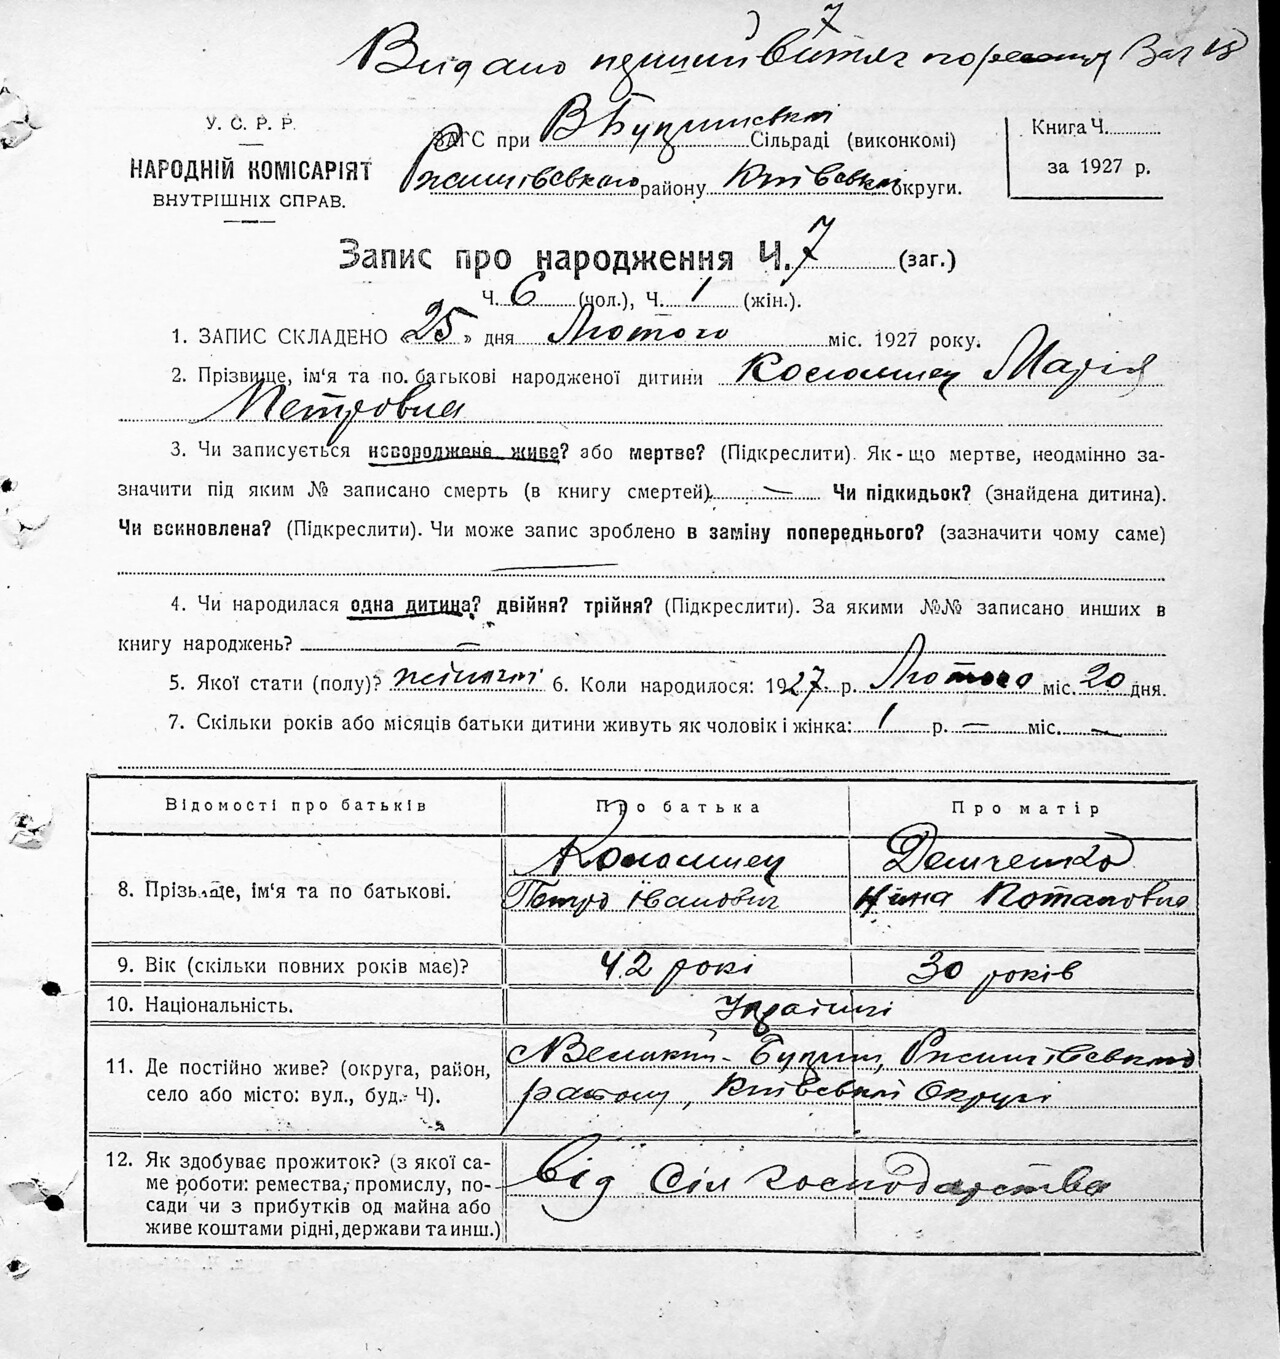 7
Видано перший витяг
У. С. Р. Р.
НАРОДНІЙ КОМІСАРІЯТ
ВНУТРІШНІХ СПРАВ.
ЗАГС при В Букринській Сільраді (виконкомі)
Ржищівського району Київської округи.
Книга Ч.
за 1927 р.
Запис про народження Ч. 7 (заг.)
Ч. 6 (чол.), Ч. 1 (жін.).
1. ЗАПИС СКЛАДЕНО «25» дня Лютого міс. 1927 року.
2. Прізвище, ім'я та по. батькові народженої дитини Коломиец Марія
Петровна
3. Чи записується новороджене живе? або мертве? (Підкреслити). Як-що мертве, неодмінно за-
значити під яким № записано смерть (в книгу смертей) — Чи підкидьок? (знайдена дитина).
Чи всиновлена? (Підкреслити). Чи може запис зроблено в заміну попереднього? (зазначити чому саме)
—
4. Чи народилася одна дитина? двійня? трійня? (Підкреслити). За якими №№ записано инших в
книгу народжень? —
5. Якої стати (полу)? жіночої 6. Коли народилося: 1927 р. Лютого міс. 20 дня.
7. Скільки років або місяців батьки дитини живуть як чоловік і жінка: 1 р. — міс. —
Відомості про батьків Про батька Про матір
Коломиец Демченко
8. Прізвище, ім'я та по батькові. Петро Іванович Нина Потаповна
9. Вік (скільки повних років має)? 42 рокі 30 років
10. Національність. Українці
11. Де постійно живе? (округа, район,
село або місто: вул., буд. Ч).
Великий-Букрин, Ржищівського
району, Київської Округі
12. Як здобуває прожиток? (з якої са-
ме роботи: ремества, промислу, по-
сади чи з прибутків од майна або
живе коштами рідні, держави та инш.)
Від Сіл господарства